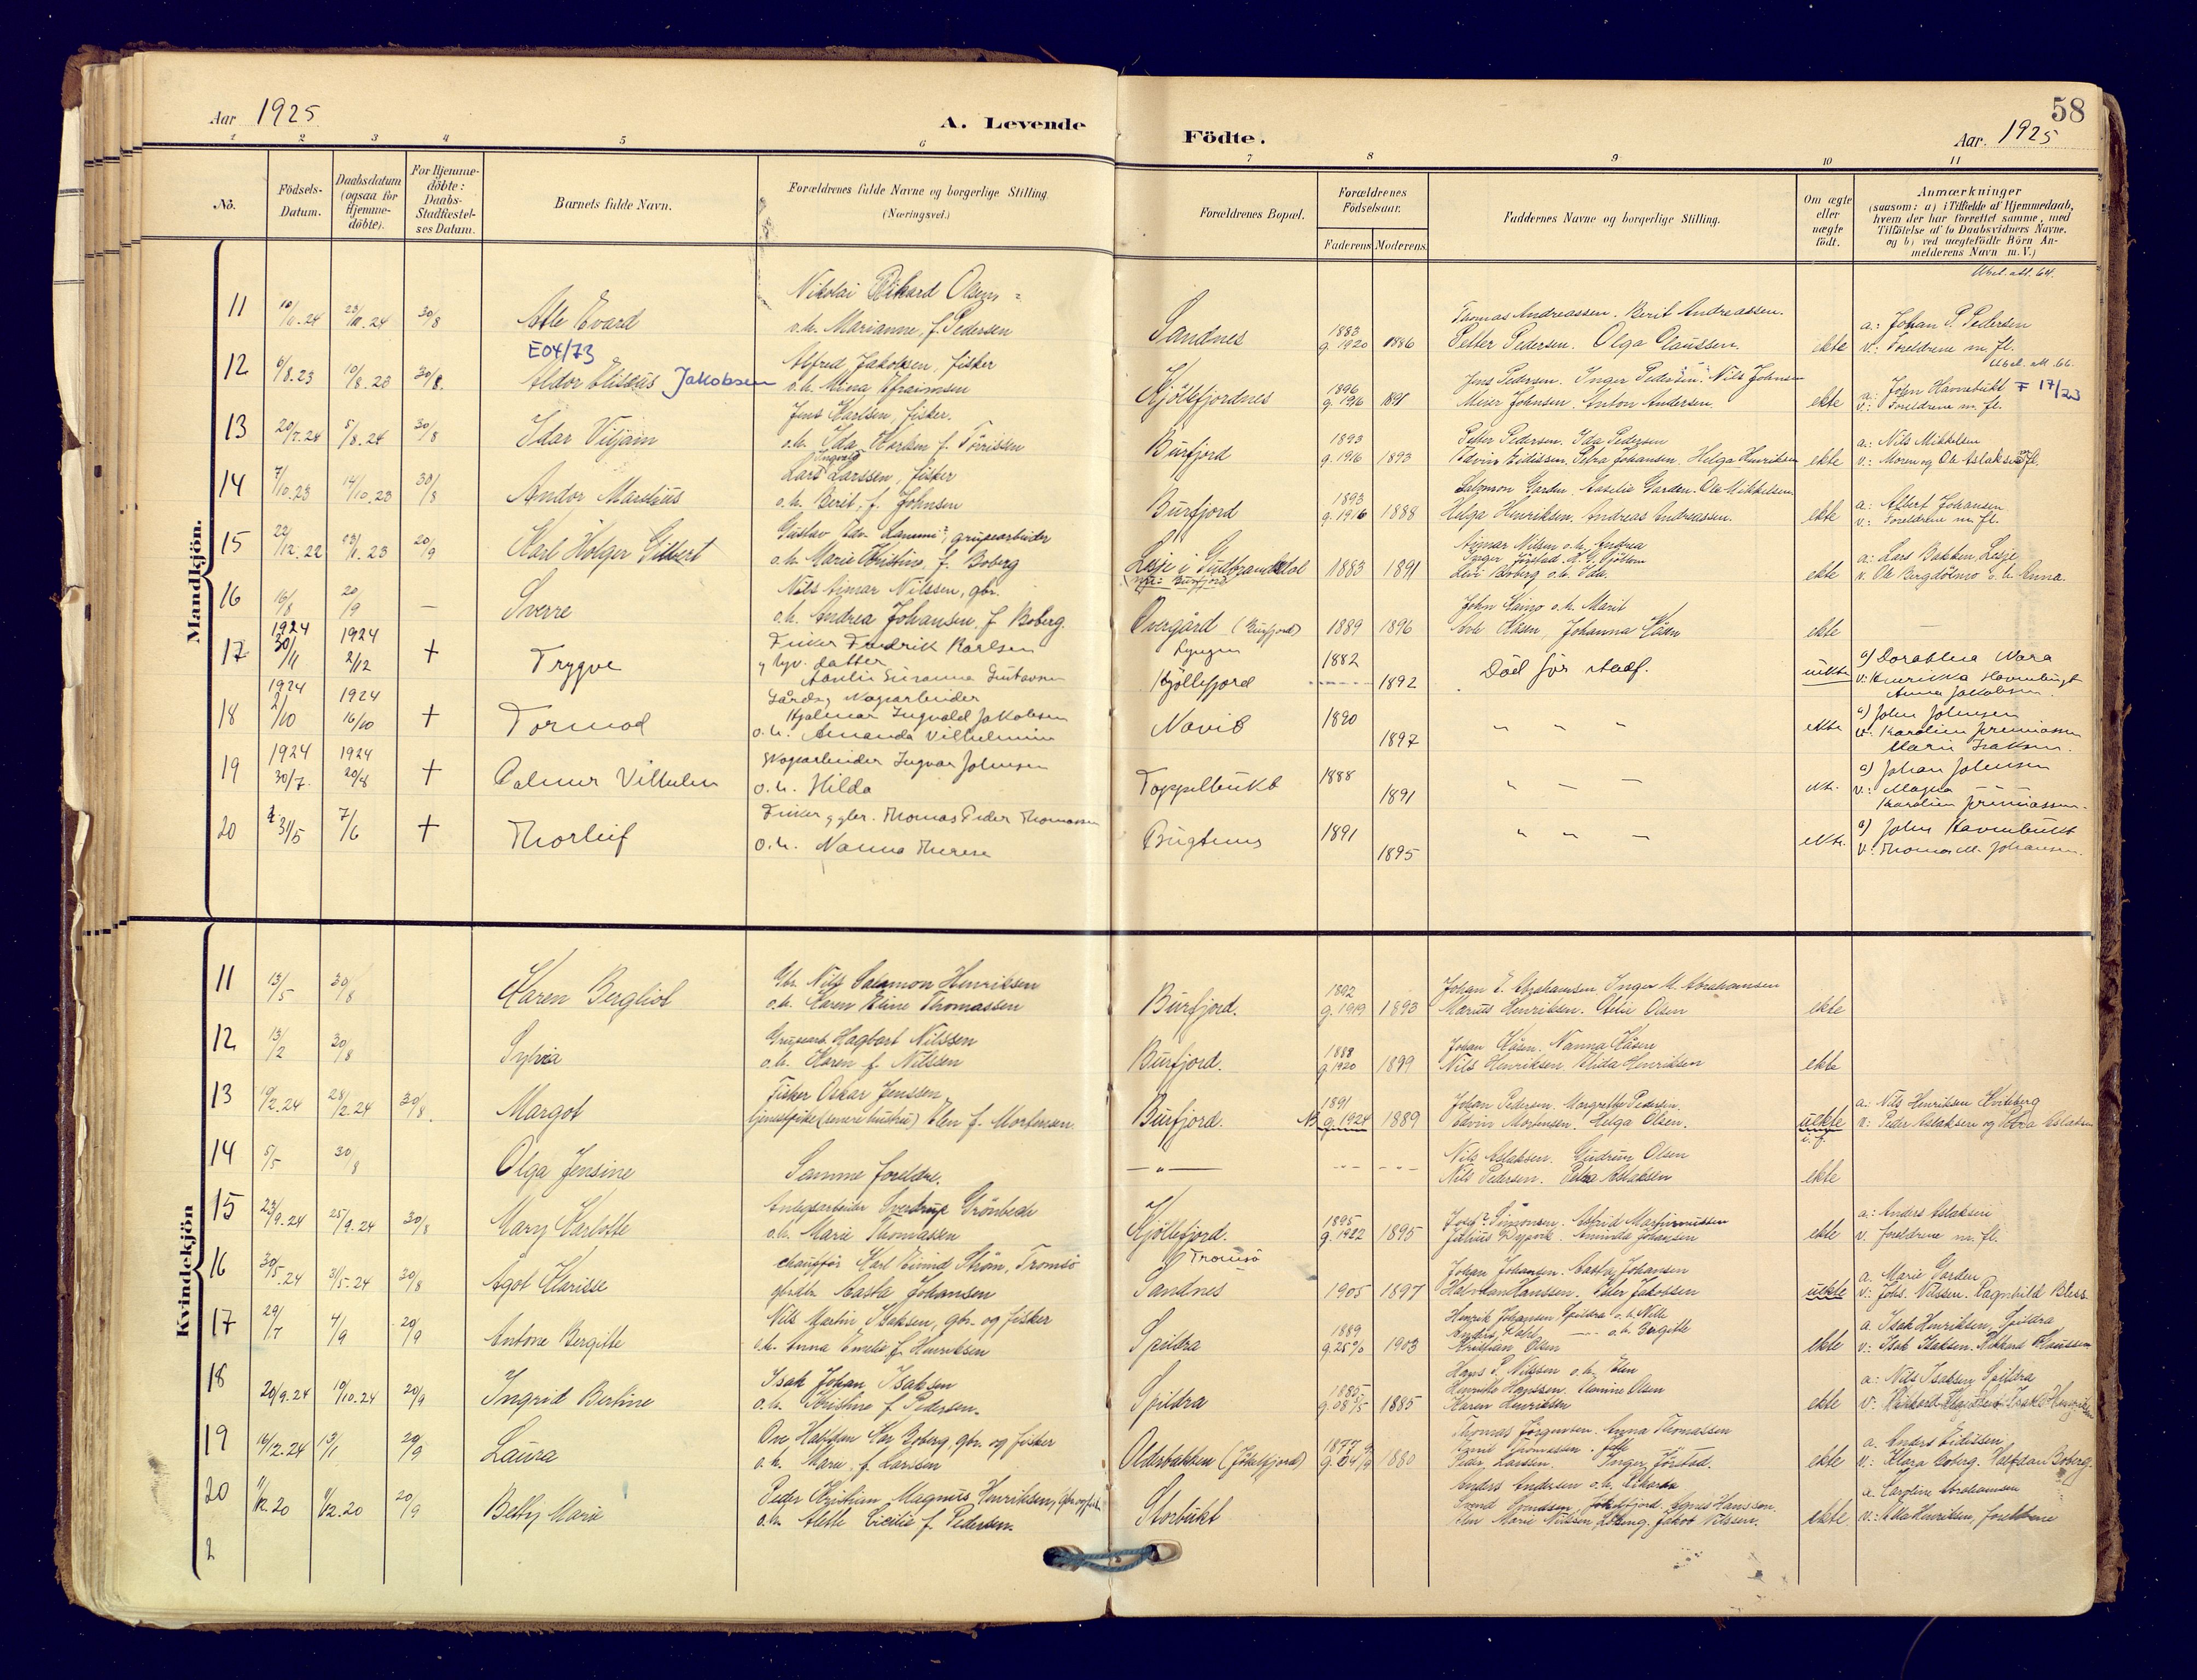 58
Aar 1925
A. Levende
Födte.
Aar. 1925
1 2 3 4 5 6 7 8 9 10 11
No.
Födsels-
Datum.
Daabsdatum
(ogsaa for
Hjemme-
döbte).
For Hjemme-
döbte:
Daabs-
Stadfæstel-
ses Datum.
Barnets fulde Navn.
Forældrenes fulde Navne og borgerlige Stilling
(Næringsvei.)
Forældrenes Bopæl.
Forældrenes
Födselsaar.
Faderens Moderens
Faddernes Navne og borgerlige Stilling.
Om ægte
eller
uægte
födt.
Anmærkninger
(saasom: a) i Tilfælde af Hjemmedaab,
hvem der har forrettet samme, med
Tilföielse af to Daabsvidners Navne.
og b) ved uægtefödte Börn An-
melderens Navn m. V.)
Mandkjön.
11 23/11.24 30/8 Atle Evard
Nikolai Rikard Olsen
o.h. Marianne, f. Pedersen
Sandnes 1883 g. 1920 1886
Thomas Andreassen. Berit Andreassen.
Petter Pedersen. Olga Claussen.
ekte
a.: Johan P. Pedersen
v.: Foreldrene m. fl.
E04/73
12 6/8.23 10/8.23 30/8. Aldor Elisæus Jakobsen
Alfred Jakobsen, fisker
o.h. Mina Efraimsen
Kjöllefjordnes 1896 g. 1916 1891
Jens Pedersen. Inger Pedersen. Nils Johnsen
Meier Johnsen. Anton Andersen.
ekte
a.: John Havnebukt F 17/23
v.: Foreldrene m. fl.
13 20/7.24 5/8.24 30/8 Idar Viljam
Jens Karlsen, fisker.
o.h. Ida Karlsen f. Törrissen
Burfjord 1893 g. 1916 1893
Petter Pedersen. Ida Pedersen
Edvin Eidissen. Petra Johansen. Helga Henriksen
ekte
a.: Nils Mikkelsen
v.: Moren og Ole Aslaksen m fl.
14 7/10.23 14/10.23 30/8 Andor Marelius
Lars Ingvald Larssen, fisker
o.h. Berit, f. Johnsen
Burfjord 1893 g. 1916 1888
Salomon Garden. Aaselie Garden. Ole Mikkelsen
Helga Henriksen. Andreas Andreassen.
ekte
a.: Albert Johansen
v.: Foreldrene m. fl.
15 22/12.22 23/1.23 20/9 Karl Holger Gilbert
Gustav Edv. grupearbeider
o.h. Marie Kristine, f. Boberg
Lesje i Gudbrandsdal
npt: Burfjord
1883 1891
Aimar Nilsen o.h. Andrea
Inger Förstad.
Levi Boberg o.h. Ida.
ekte
a.: Lars Bakken, Lesje
v. Ole Bergdölmo o.h. Anna.
16 16/8 20/9 — Sverre
Nils Aimar Nilssen, gbr.
o.h. Andrea Johansen, f. Boberg.
Övergård (Burfjord) 1889 1896
John Kaino o.h. Marit
Johanna Kåsen
ekte
17 1924 30/11 1924 2/12 + Trygve
Fisker Fredrik Karlsen
g tyv. datter
Susanna Gustavsen
Lyngen
Kjöllefjord 1882 1892
Död för stadf.
uekte
a) Dorathea Nara
v: Henrikka Havnbugt
Anna Jakobsen.
18 1924 2/10 1924 16/10 + Tormod
Gårds g Veiarbeider
Hjalmar Ingvald Jakobsen
o.h. Amanda Vilhelmine
Navit 1890 1897
" " "
ekte
a) John Johnsen
v. Karolin Jeremiassen
Marie Isaksen.
19 1924 30/7. 1924 20/8 + Palmer Vilhelm
Veiarbeider Ingvar Johnsen
o.h. Hilda
Toppelbukt 1888 1891
" —
ekte.
a) Johan Johnsen
v: Magna
Karolin Jeremiassen.
20 31/5 7/6 + Thorleif
Fisker g gbr. Thomas Peder Thomassen
o.h. Nanna Therese
Bugtnes 1891 1895
" " —
ekte.
a) John Havnbukt
v: Thomas M. Johansen.
Kvindekjön
11 13/5 30/8 Karen Bergliot
Gbr. Nils Salamon Henriksen
o.h. Karen Eline Thomassen
Burfjord. 1892 g. 1919 1893
Johan E. Abrahamsen. Inger M. Abrahamsen
Marius Henriksen. Otelie Olsen
ekte
12 13/2 30/8 Sylvia
Grupearb. Hagbart Nilssen
o.h. Karen f. Nilssen
Burfjord. 1888 g. 1920 1899
Johan Kåsen. Nanna Kåsen
Nils Henriksen. Alida Henriksen
ekte
13 19/2.24 28/2.24 30/8. Margot
Fisker Oskar Jenssen
tjenestpike (senere hustru) Elen f. Mortensen.
Burfjord. 1891 NB g. 1924 1889
Johan Pedersen. Margrethe Pedersen.
Edvin Mortensen. Helga Olsen.
uekte
a.: Nils Henriksen Kviteberg
v: Peder Aslaksen og Petra Aslaksen
14 5/5 30/8 Olga Jensine
Samme foreldre.
— " —
Nils Aslaksen. Gudrun Olsen
Nils Pedersen. Petra Aslaksen
ekte
15 23/9.24 25/9.24 30/8 Mary Karlotte
Anlegsarbeider Sverdrup Grönbech
o.h. Marie Thomassen
Kjöllefjord. 1895 g. 1922 1895
Simonsen. Astrid Martinussen
Julius Byrvik. Aminda Johansen
ekte
a.: Anders Aslaksen
v. foreldrene m. fl.
16 30/5.24 31/5.24 30/8 Agot Klarisse
chauffør Karl Eivind Ström, Tromsö
gbrdtr. Aasta Johansen
Tromsö
Sandnes 1905 1897
Johan Johansen. Aasta Johansen
Halvdan Hanssen. Peder Jakobsen
uekte
a. Marie Garden
v.: Johs. Nilssen. Ragnhild Bless
17 29/7 4/9 20/9 Antone Bergitte
Nils Martin Isaksen, gbr. og fisker
o.h. Anna Emelie f. Henriksen
Spildra 1889 1903
Henrik Johansen, Spildra o.h. Nille
Anders Wahl — o.h. Bergitte
Kristian Olsen
ekte
a. Isak Henriksen, Spildra
v.: Isak Isaksen. Rikkard Klaussen
18 20/9.24 10/10.24 20/9 Ingrid Berline
Isak Johan Isaksen
o.h. Kristine f. Pedersen.
Spildra 1885 1885
Hans P. Nilssen o.h. Elen
Henrikke Hanssen. Olsen
Karen Henriksen
ekte
a.: Nils Isaksen Spildra
19 16/12.24 13/1 20/9 Laura
Ove Halvdan Kar Boberg, gbr. og fisker
o.h. Marie, f. Larssen
Olderbakken (Jökelfjord) 1877 1880
Thomas Jörgensen. Anna Thomassen
Thomassen.
Peder Larssen. Inger Förstad.
ekte
a. Anders Eidissen
v.: Klara Boberg. Halfdan Boberg.
20 1/12.20 20/9 Betty Marie
Peder Kristian Magnus Henriksen, Gbr og fisk.
o.h. Alette Cicilie f. Pedersen.
Storbukt
Anders Andersen o.h. Rikarda
Jökelfjord. Agnes Hanssen.
Elen Marie Nilssen, Jakob Nilssen.
ekte
a. Caroline Abrahamsen
v.: Henriksen, foreldrene
2